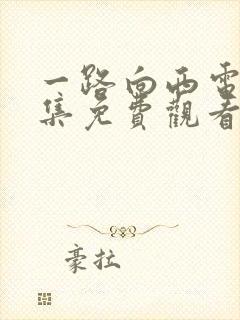 一路向西電
集免費觀看
豪拉